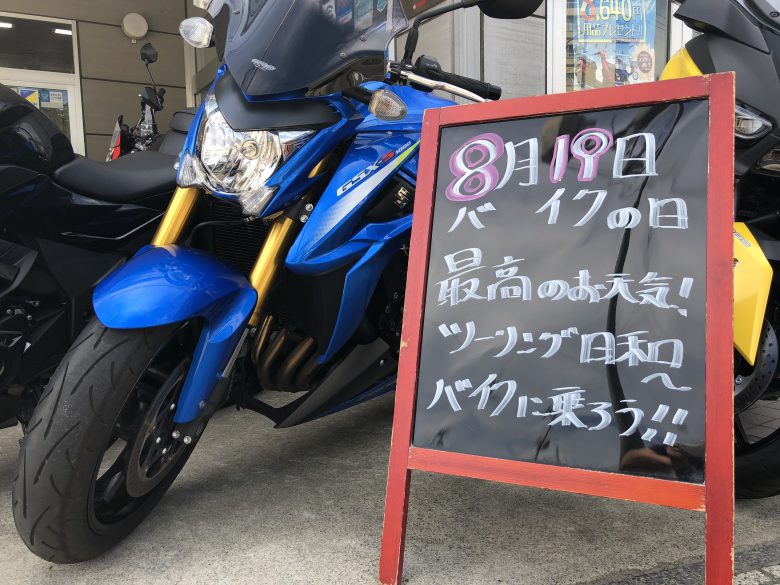 8,640円
用品プレゼント!!
GSX-S1000
8月19日
バイクの日
最高のお天気!
ツーリング日和〜
バイクに乗ろう!!